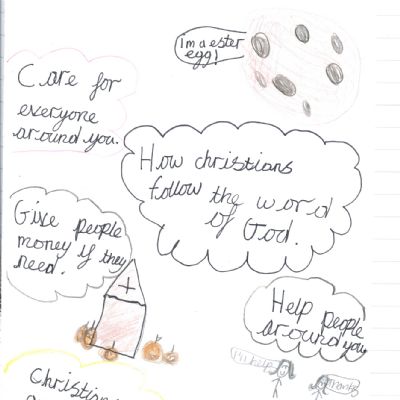 I'm a ester
egg!
Care for
everyone
around you.
How christians
follow the word
of God.
Give people
money if they
need.
Help people
around you
I'll help
thanks
Christian